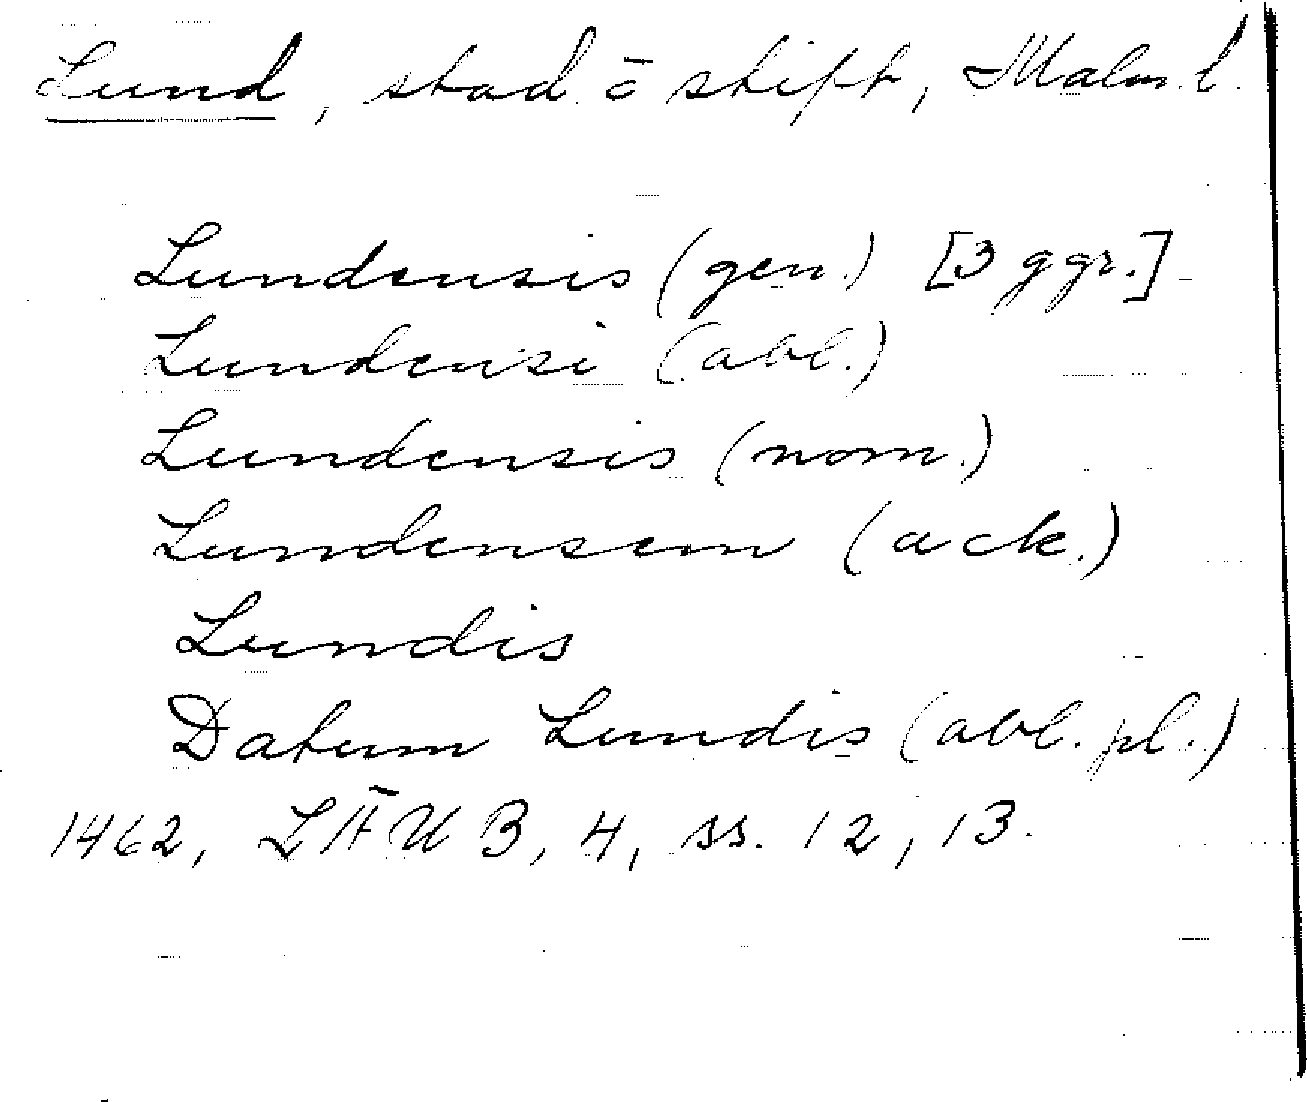 Lund, stad o stift, Malm.l.
Lundensis (gen.) [3 ggr.]
Lundensi (abl.)
Lundensis (nom.)
Lundensem (ack.)
Lundis
Datum Lundis (abl. pl.)
1462, LÄUB, 4, ss. 12, 13.